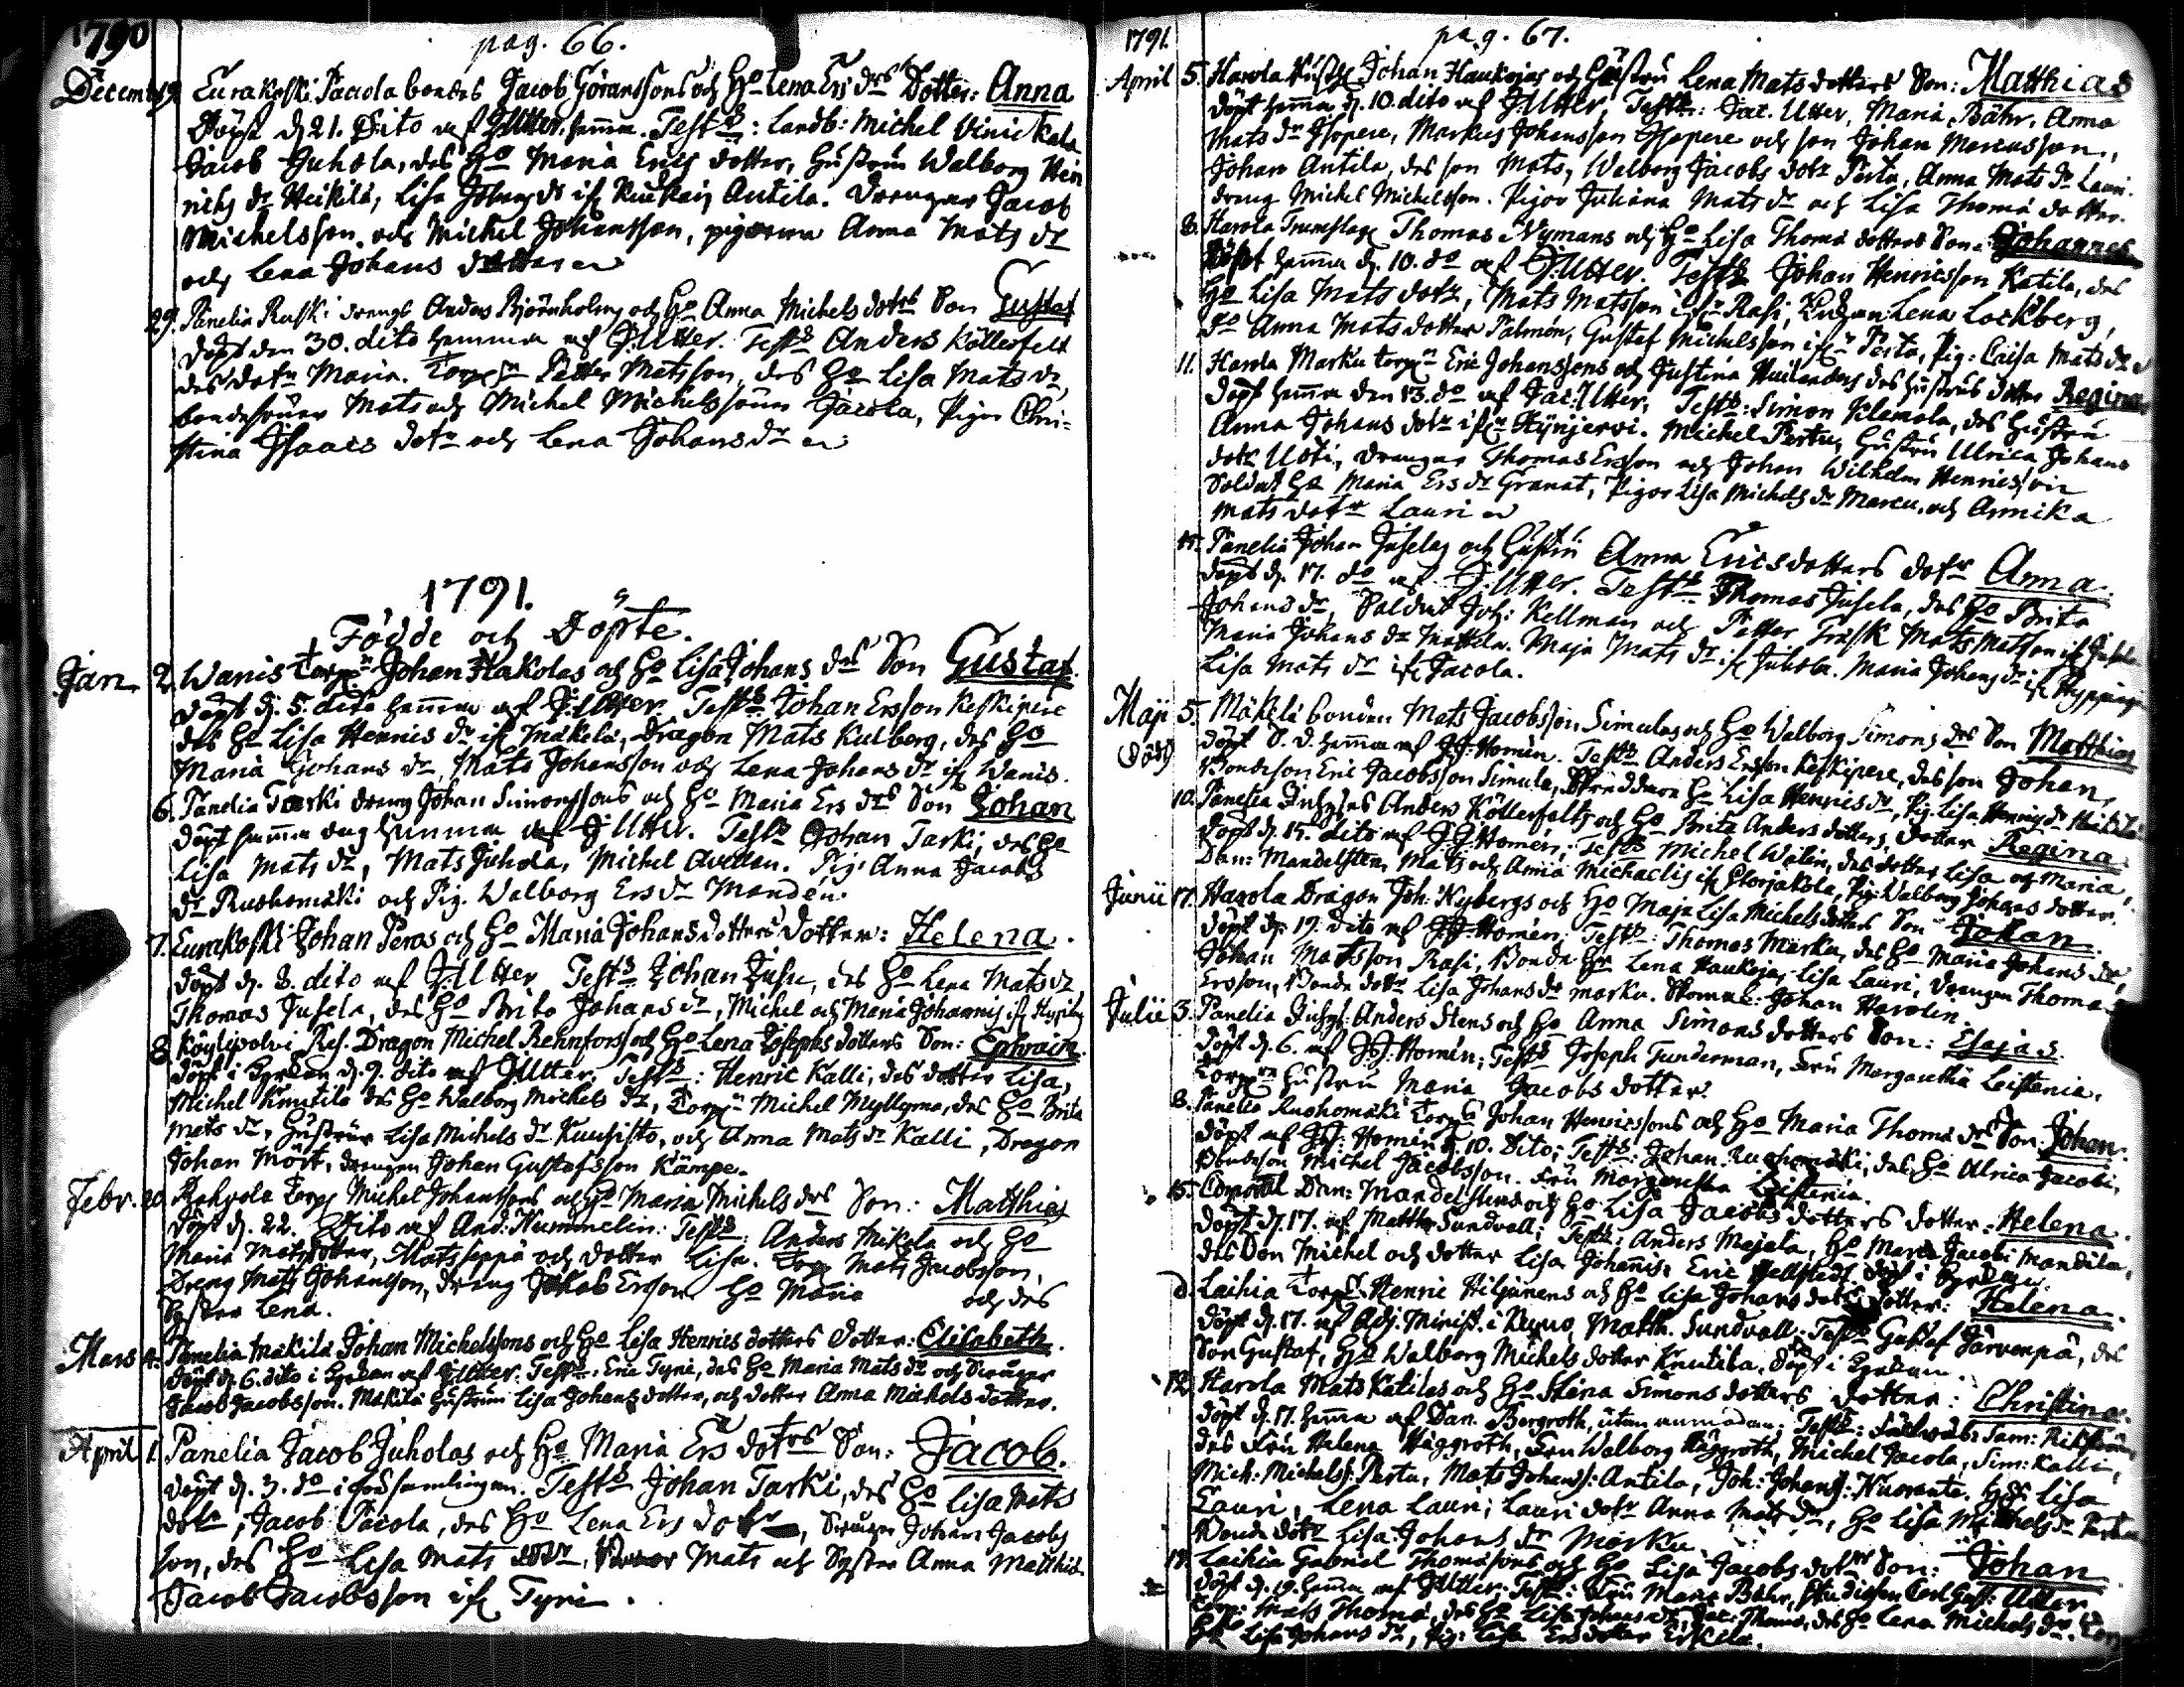 1790
pag. 66.
Decemb. 19. Eurakoski Pacola bondes Jacob Göranssons och Ho Lena Ers drs Dotter: Anna
Döpt d. 21. Dito af J Utter. hemma. Testb: Landb: Michel Vinickala
Jacob Juhola, des Ho Maria Erics dotter, Hustrun Walborg Hen
richs dr Heikilä, Lisa Johans dr if Antila. Drengar Jacob
Michelsson och Michel Johansson, pigorna Anna Mats dr
och Lena Johans dotter
29. Panelia Ruski drengs Anders Björnholms och Ho Anna Michels dotrs Son Gustaf
Döpt den 30. dito hemma af J: Utter. Testb Anders Köllerfelt
des dotr Maria. Torp Petter Matsson, des Ho Lisa Mats dr,
bondesöner Mats och Michel Michelssöner Jacola, Pigor Chri-
stina Isaacs dotr och Lena Johansdr
1791.
Födde och Döpte.
Jan. 2. Wanis Torp Johan Hakolas och Ho Lisa Johans drs Son Gustaf
döpt d. 5. dito hemma af J: Utter. Testb Johan Ersson Keskipere
des Ho Lisa Henrics dr if Mäkelä, Dragon Mats Kulberg, des Ho
Maria Johans dr, Mats Johansson och Lena Johans dr if Wanis.
6. Panelia Tarki dreng Johan Simonssons och Ho Maria Ers drs Son Johan
döpt samma dag hemma af J Utter. Testb Johan Tarki, des Ho
Lisa Mats dr, Mats Juhola, Michel Avellan. Pig: Anna Jacobs
dr Ruohomäki och Pig. Walborg Ers dr Mandén.
7. Eurakoski Johan Peras och Ho Maria Johansdotters Dotter: Helena.
döpt d. 8. dito af J: Utter Testb Johan Jusu, des Ho Lena Mats dr
Thomas Jusela, des Ho Brita Johans dr, Michel och Maria Johannis if
8. Köylipolvi Res. Dragon Michel Rehnfors och Ho Lena Josephs dotters Son: Ephraim
döpt i Kyrkan d. 9. dito af J Utter. Testb: Henric Kalli, des dotter Lisa,
Michel Knutila des Ho Walborg Michels dr, Torp Michel Myllyma, des Ho Brita
Mats dr, Hustrur Lisa Michels dr Kuusisto, och Anna Mats dr Kalli, Dragon
Johan Mört, drengen Johan Gustafsson Kämpe.
Febr. 20. Torp Michel Johanssons och Ho Maria Michels drs Son: Matthias
döpt d. 22. Dito af And: Hummelin: Testb: Anders Mikola och Ho
Maria Matsdotter, Mats Seppä och dotter Lisa. Torp Mats Jacobsson,
Dreng Mats Johansson, dreng Jakob Ersson Ho Maria och des
Syster Lena.
Mars 4. Panelia Makila Johan Michelssons och Ho Lisa Henrics dotters Dotter: Elisabeth.
döpt d. 6. dito i Kyrkan af J Utter. Testb. Eric Tyni, des Ho Maria Mats dr och Drengar
Jacob Jacobsson. Makila Hustrun Lisa Johans dotter, och dotter Anna Michels dotter.
April 1. Panelia Jacob Juholas och Ho Maria Ers dotrs Son: Jacob.
döpt d. 3. do i församlingen. Testb Johan Tarki, des Ho Lisa Mats
dotr, Jacob Pacola, des Ho Lena Ers dotr, Drengen Johan Jacobs
son, des Ho Lisa Mats dotr, Mats och Syster Anna Matthiæ
Jacob Jacobsson if Tyni.
1791.
pag. 67.
April 5. Harola Johan Haukojas och Hustru Lena Mats dotters Son: Matthias
döpt hemma d. 10. dito af J Utter. Testb: Jac. Utter, Maria Bähr, Anna
Mats dr Isopere, Markus Johansson Isopere och son Johan Marcusson,
Johan Antila, des son Mats, Walborg Jacobs dotr Pertu, Anna Mats dr Lauri.
dreng Michel Michelsson. Pigor Juliana Mats dr och Lisa Thomæ dotter.
8. Harola Trumslag Thomas Nymans och Ho Lisa Thomæ dotters Son: Johannes
Döpt hemma d. 10. do af J: Utter. Testb Johan Henricsson Katila, des
Ho Lisa Mats dotr, Mats Matsson Rasi, Enkan Lena Lockberg,
Ho Anna Mats dotter Palmén, Gustaf Michelsson Pertu, Pig: Caisa Mats dr
11. Harola Marku torp Eric Johanssons och Justina des Hustrus dotter Regina
döpt hemma den 13. do af Jac: Utter. Testb: Simon Klamola, des Hustru
Anna Johans dotr Hynjervi. Michel Pertu, Hustrun Ulrica Johans
dotr Uoti, drengar Thomas Ersson och Johan Wilhelm Henricsson
Soldat Ho Maria Ers dr Granat, Pigor Lisa Michels dr Marcu, och Annika
Mats dotr Lauri
15. Panelia Johan Juselas och Hustru Anna Ericsdotters dotr Anna.
döpt d. 17. do af J. Utter. Testb Thomas Jusela, des Ho Brita
Johans dr, Soldat Joh: Kellman och Petter Trask Mats Matsson
Maria Johans dr Mattila. Maja Mats dr if Juhola. Maria Johans dr if
Lisa Mats dr if Jacola.
Maji 5. Mäkelä bonden Mats Jacobsson Simulas och Ho Walborg Simons drs Son Matthias
döpt S. D. hemma af J J: Homén. Testb Anders Ersson Keskipere, des son Johan,
Bondeson Eric Jacobsson Simula, Ho Lisa Henrics dr, Pig. Lisa Henrics dr Heikilä
10. Panelia Anders Köllerfelts och Ho Brita Anders dotters, dotter Regina
döpt d. 15. dito af J J Homén; Testb Michel Wälin, des dotter Lisa og Maria,
Dan: Mandelsten, Mats och Anna Michaelis if Storjakola, Pig: Walborg Johans dotter.
Junii 17. Harola Dragon Joh: Nybergs och Ho Maja Lisa Michelsdotters Son Johan
döpt d. 19. dito af J J Homén. Testb: Thomas Marku, des Ho Maria Johans dr,
Johan Matsson Rasi, Bonde Ho Lena Haukoja, Lisa Lauri, Drengen Thomas
Ersson, Bonde dotr Lisa Johans dr Marku. Johan Harolin
Julii 3. Panelia Anders Stens och Ho Anna Simons dotters Son: Esajas.
döpt d. 6. af J J: Homén; Testb Joseph Tunderman, Fru Margaretha Leistenia,
Torp Hustru Maria Jacobs dotter.
8. Panelia Ruohomäki Torp Johan Henricssons och Ho Maria Thomæ drs Son: Johan
döpt af J J: Homén d. 10. Dito; Testb: Johan Ruohomäki, des Ho Ulrica Jacobi,
Bondeson Michel Jacobsson. Fru Margaretha Leistenia.
15. Corporal Dan: Mandelstens och Ho Lisa Jacobs dotters dotter: Helena.
döpt d. 17. af Matth Sundvall; Testb: Anders Majala, Ho Maria Jacobi Mandila,
des Son Michel och dotter Lisa Johannis. Eric Hellstedt. döpt i Kyrkan.
d. Laihia Torp Henric Hiljanens och Ho Lisa Johans dotrs dotter: Helena.
döpt d. 17. af Adj. Minist. i Kiuro, Matth. Sundvall; Testb Gustaf Järvenpä, des
Son Gustaf, Ho Walborg Michels dotter Knutila. döpt i Kyrkan.
12. Harola Mats Katilas och Ho Stina Simons dotters dotter: Christina.
döpt d. 17. hemma af Dan. Bergroth, Testb: Sam:
des Fru Helena Häggroth, Fru Walborg Häggroth, Michel Jacola, Sim: Kalli,
Mich: Michelss: Pertu, Mats Johanss: Antila, Joh: Johanss: Kuoranta. Ho Lisa
Lauri, Lena Lauri; Lauri dotr Anna Mats dr, Ho Lisa Michels dr Pertu
Bonde dotr Lisa Johans dr Marku.
19. Laihia Gabriel Thomæsons och Ho Lisa Jacobs dotrs Son: Johan
döpt d. 19. hemma af J Utter. Testb: Fru Maria Bähr, Studiosen Carl Gust: Utter
Torp: Mats Thomæ, des Ho Lisa Johans dr, Jac: Thomæ, des Ho Lena Michels dr.
Ho Lisa Johans dr, Pig: Lisa Ers dotter Eskola.